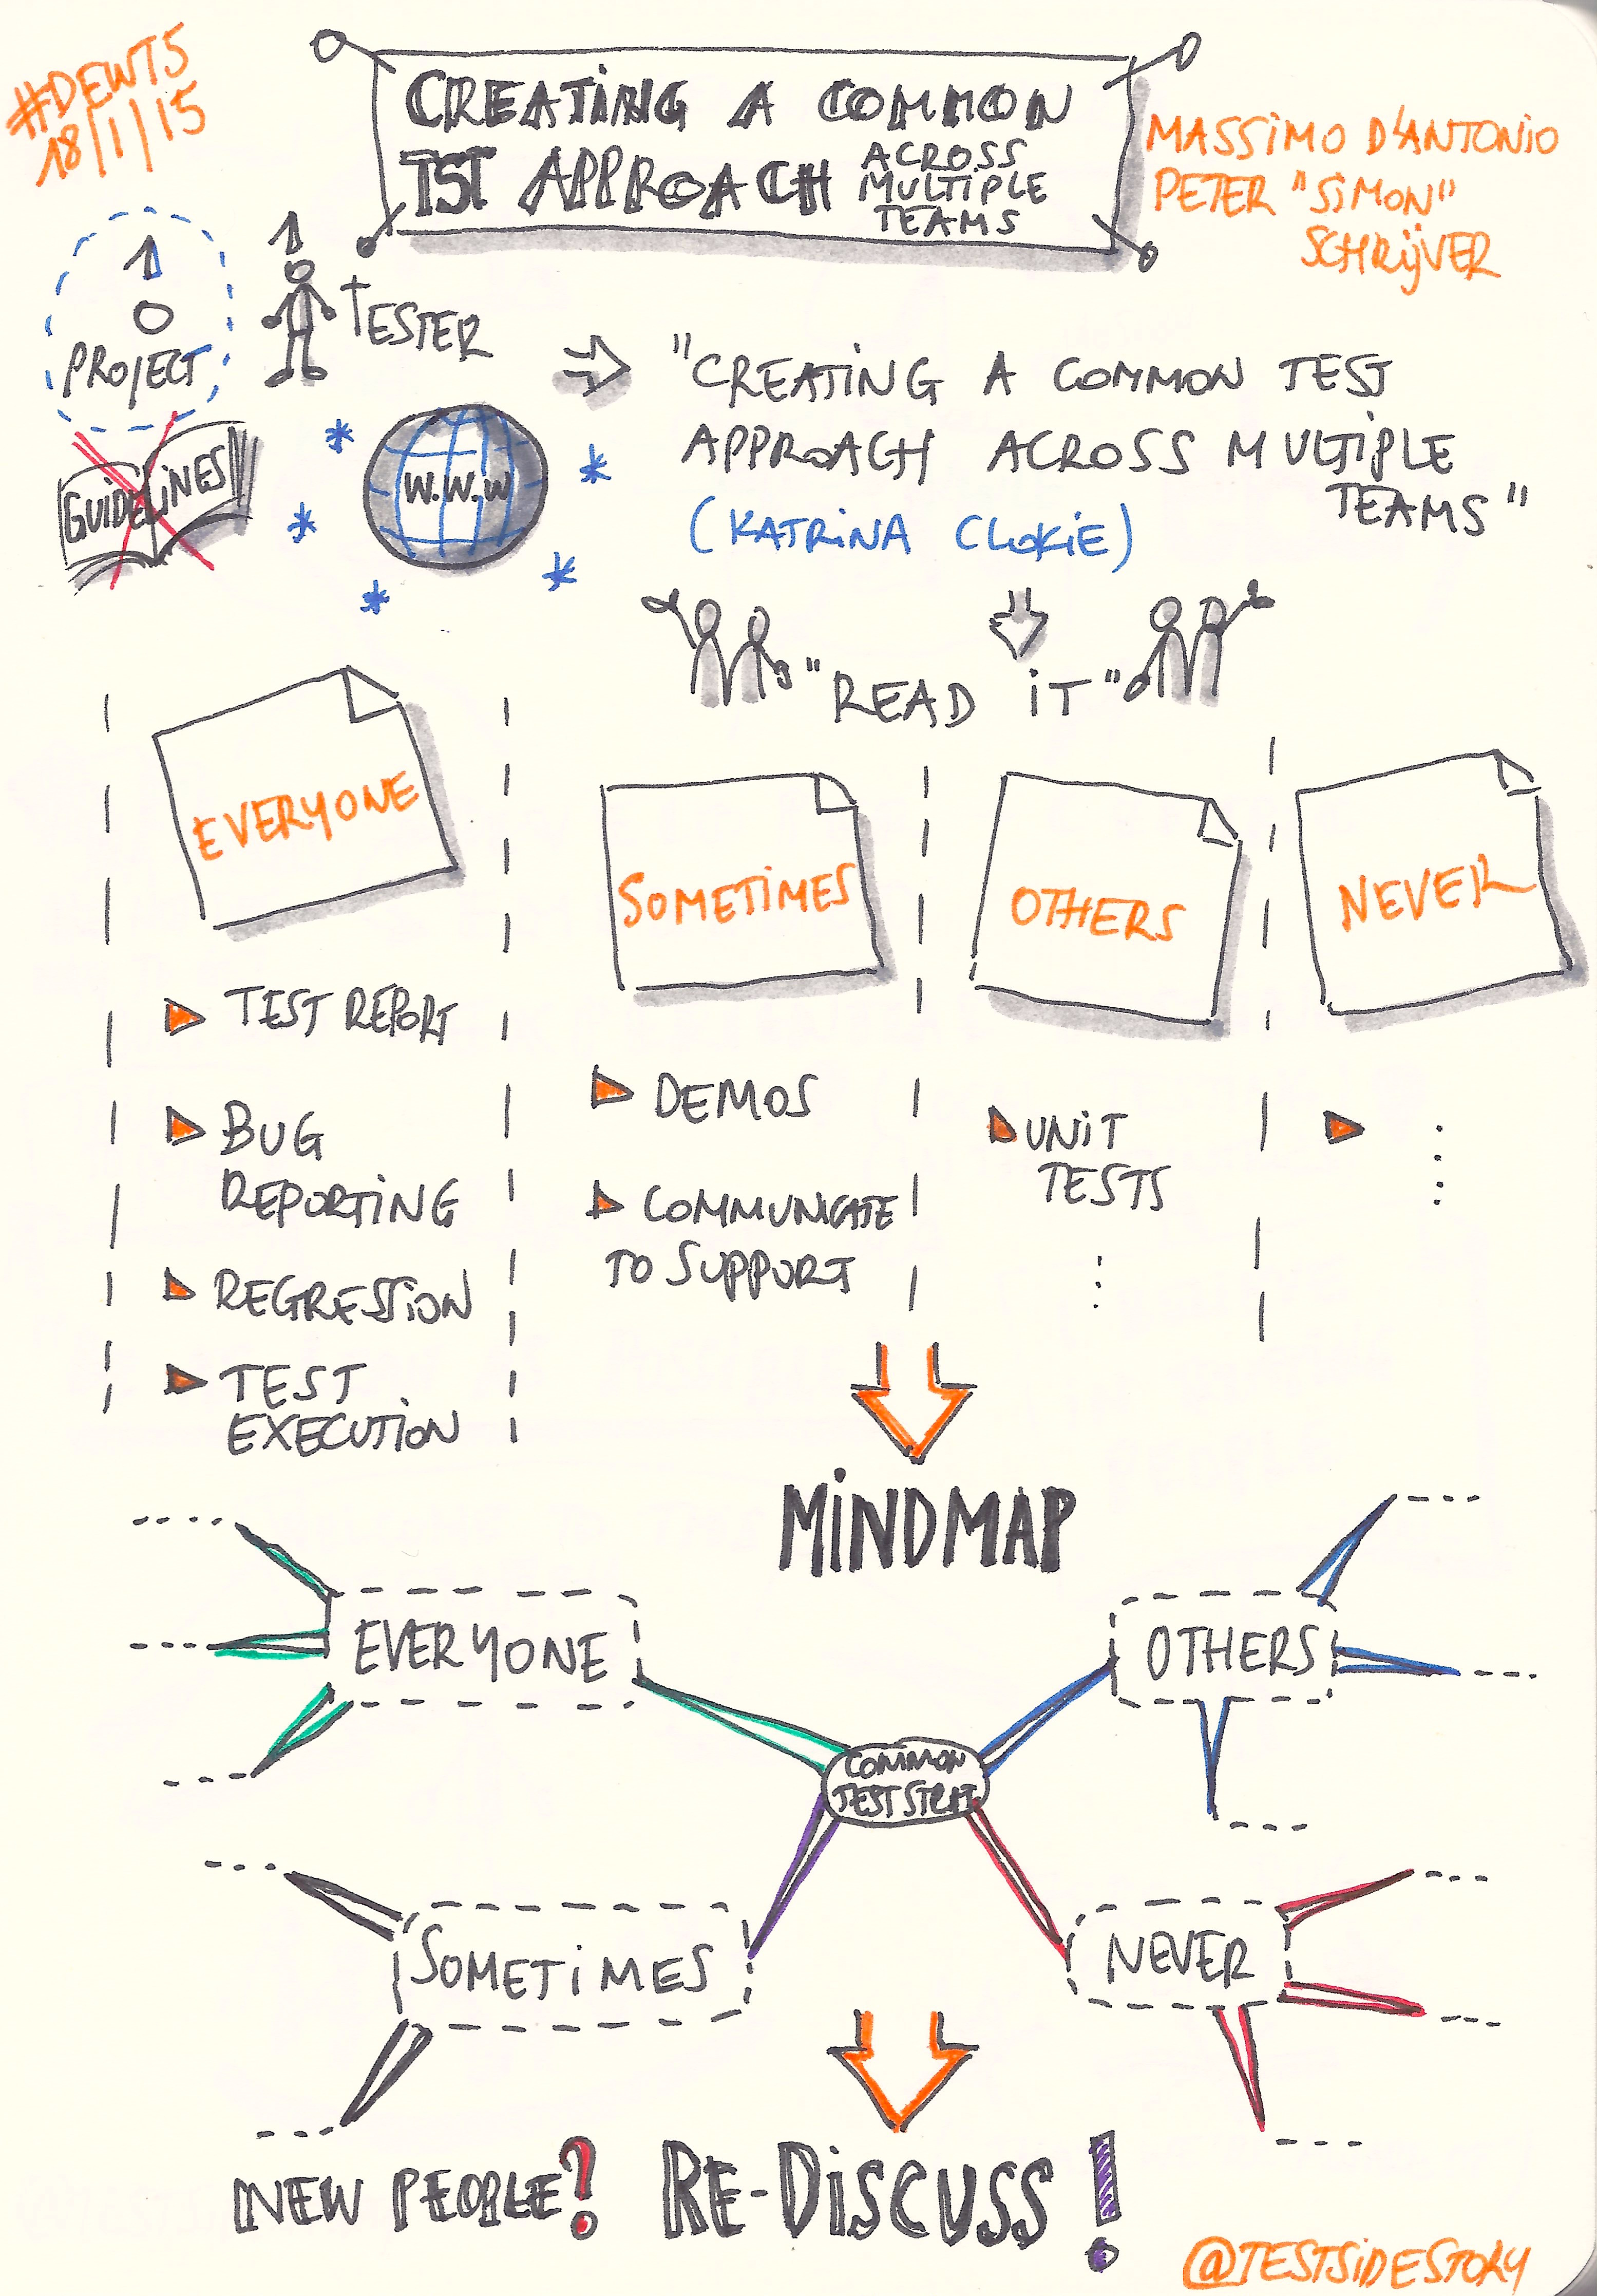 #DEWT5
18/1/15
CREATiNG A COMMON
TST APPROACH ACROSS
MULTIPLE
TEAMS
MASSiMO D'ANTONiO
PETER "SiMON"
SCHRijVER
1
PROJECT
1
TESTER
GUIDELiNES
W.W.W
"CREATiNG A COMMON TEST
APPROACH ACROSS MULTiPLE
TEAMS"
(KATRiNA CLOKiE)
"READ iT"
EVERYONE
TEST REPORT
BUG
REPORTiNG
REGRESSiON
TEST
EXECUTiON
SOMETiMES
DEMOS
COMMUNICATE
TO SUPPORT
OTHERS
UNiT
TESTS
NEVER
MiNDMAP
EVERYONE
OTHERS
COMMON
TEST STRAT
SOMETiMES
NEVER
NEW PEOPLE? RE-DiSCUSS!
@TESTSiDESTORY